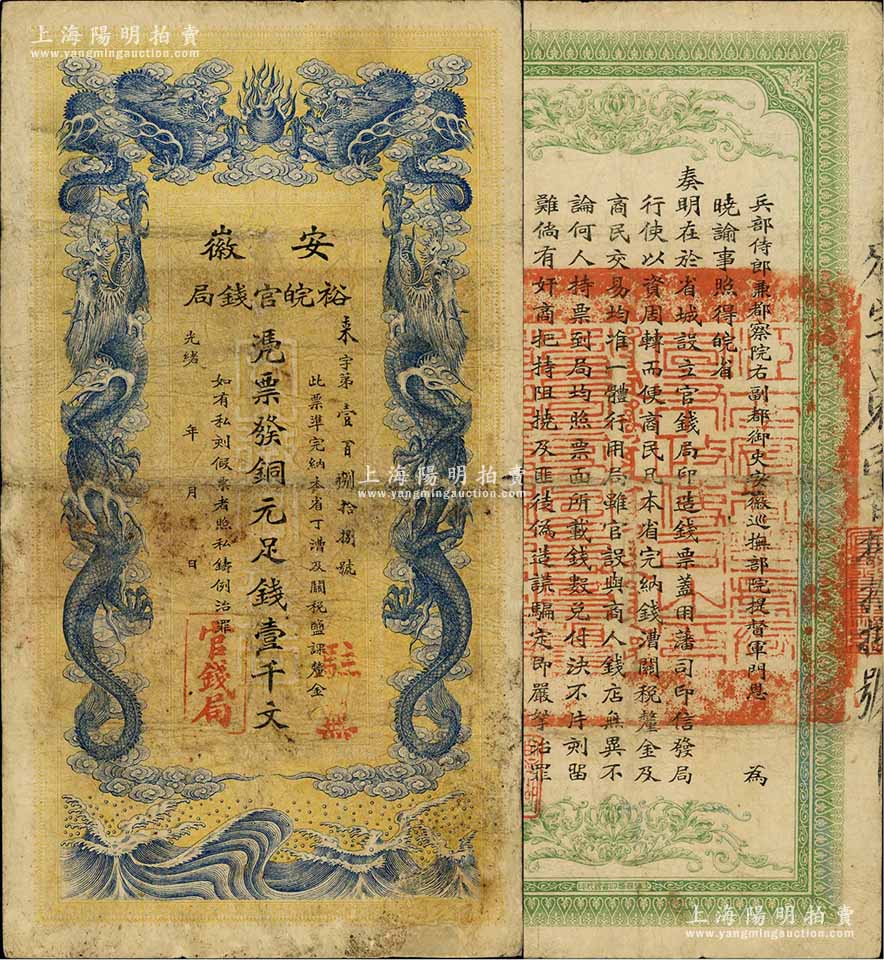 上海陽明拍賣
www.yangmingauction.com
上海陽明拍賣
www.yangmingauction.com
安徽
裕皖官錢局
來字第壹百捌拾捌號
此票準完納本省丁漕及關稅鹽課釐金
憑票發銅元足錢壹千文
如有私刻假票者照私鑄例治罪
光緒 年 月 日
官錢局
兵部侍郎兼都察院右副都御史安徽巡撫部院提督軍門恩 為
曉諭事照得皖省
奏明在於省城設立官錢局印造錢票蓋用藩司印信發局
行使以資周轉而便商民凡本省完納錢漕關稅釐金及
商民交易均准一體行用局雖官設與商人錢店無異不
論何人持票到局均照票面所載錢數兌付決不片刻留
難倘有奸商把持阻撓及匪徒偽造謀騙定即嚴拏治罪
號
上海陽明拍賣
www.yangmingauction.com
上海陽明拍賣
www.yangmingauction.com